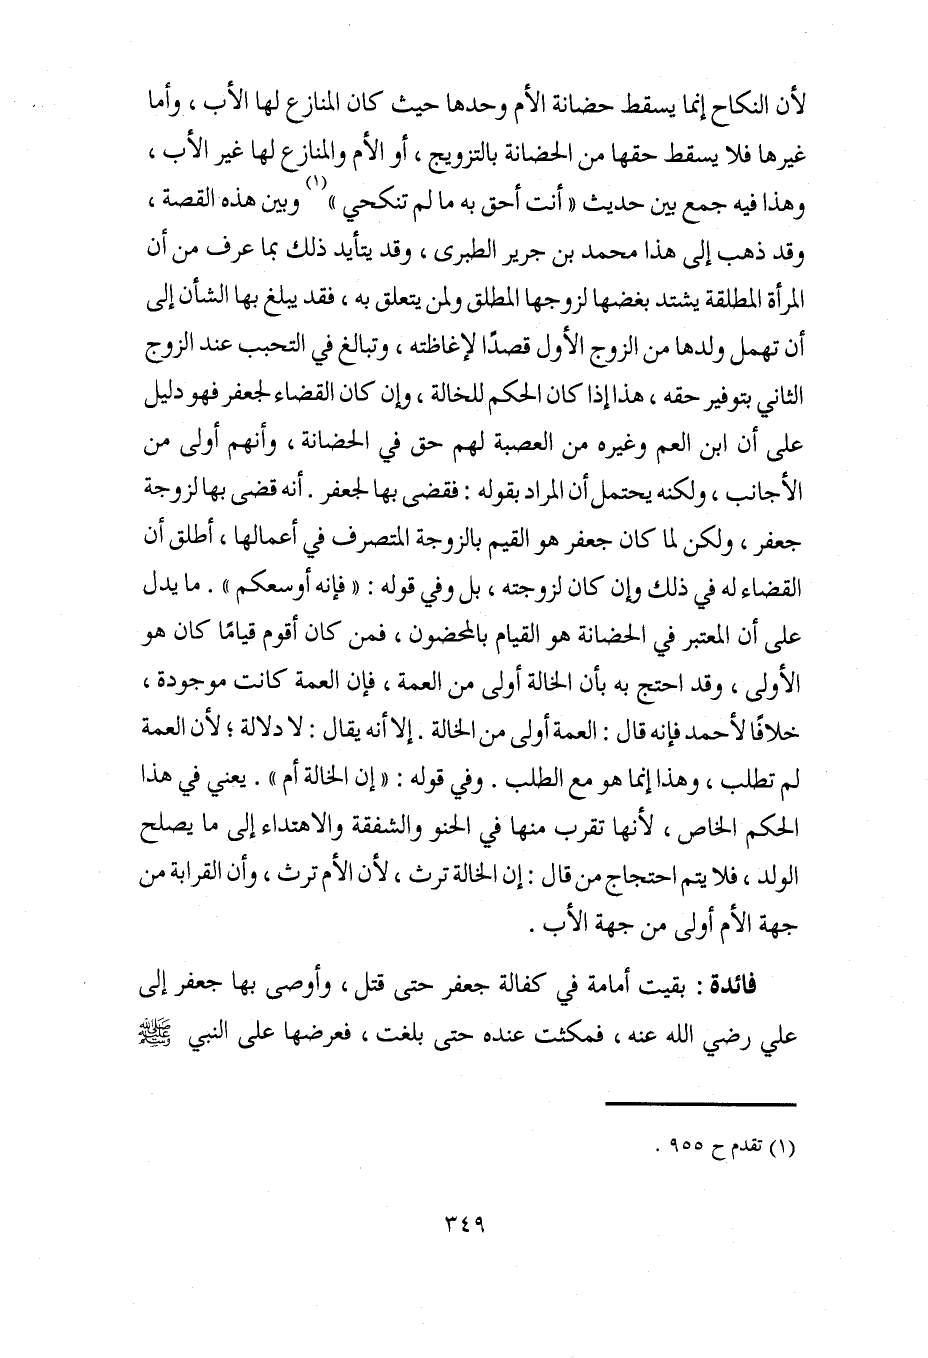 لأن النكاح إنما يسقط حضانة الأم وحدها حيث كان المنازع لها الأب ، وأما
غيرها فلا يسقط حقها من الحضانة بالتزويج ، أو الأم والمنازع لها غير الأب ،
وهذا فيه جمع بين حديث « أنت أحق به ما لم تنكحي »(١) وبين هذه القصة ،
وقد ذهب إلى هذا محمد بن جرير الطبرى ، وقد يتأيد ذلك بما عرف من أن
المرأة المطلقة يشتد بغضها لزوجها المطلق ولمن يتعلق به ، فقد يبلغ بها الشأن إلى
أن تهمل ولدها من الزوج الأول قصدًا لإغاظته ، وتبالغ في التحبب عند الزوج
الثاني بتوفير حقه ، هذا إذا كان الحكم للخالة ، وإن كان القضاء لجعفر فهو دليل
على أن ابن العم وغيره من العصبة لهم حق في الحضانة ، وأنهم أولى من
الأجانب ، ولكنه يحتمل أن المراد بقوله : فقضى بها لجعفر . أنه قضى بها لزوجة
جعفر ، ولكن لما كان جعفر هو القيم بالزوجة المتصرف في أعمالها ، أطلق أن
القضاء له في ذلك وإن كان لزوجته ، بل وفي قوله : « فإنه أوسعكم » . ما يدل
على أن المعتبر في الحضانة هو القيام بالمحضون ، فمن كان أقوم قيامًا كان هو
الأولى ، وقد احتج به بأن الخالة أولى من العمة ، فإن العمة كانت موجودة ،
خلافًا لأحمد فإنه قال : العمة أولى من الخالة . إلا أنه يقال : لا دلالة ؛ لأن العمة
لم تطلب ، وهذا إنما هو مع الطلب . وفي قوله : « إن الخالة أم » . يعني في هذا
الحكم الخاص ، لأنها تقرب منها في الحنو والشفقة والاهتداء إلى ما يصلح
الولد ، فلا يتم احتجاج من قال : إن الخالة ترث ، لأن الأم ترث ، وأن القرابة من
جهة الأم أولى من جهة الأب .
فائدة : بقيت أمامة في كفالة جعفر حتى قتل ، وأوصى بها جعفر إلى
علي رضي الله عنه ، فمكثت عنده حتى بلغت ، فعرضها على النبي ﷺ
(١) تقدم ح ٩٥٥ .
٣٤٩